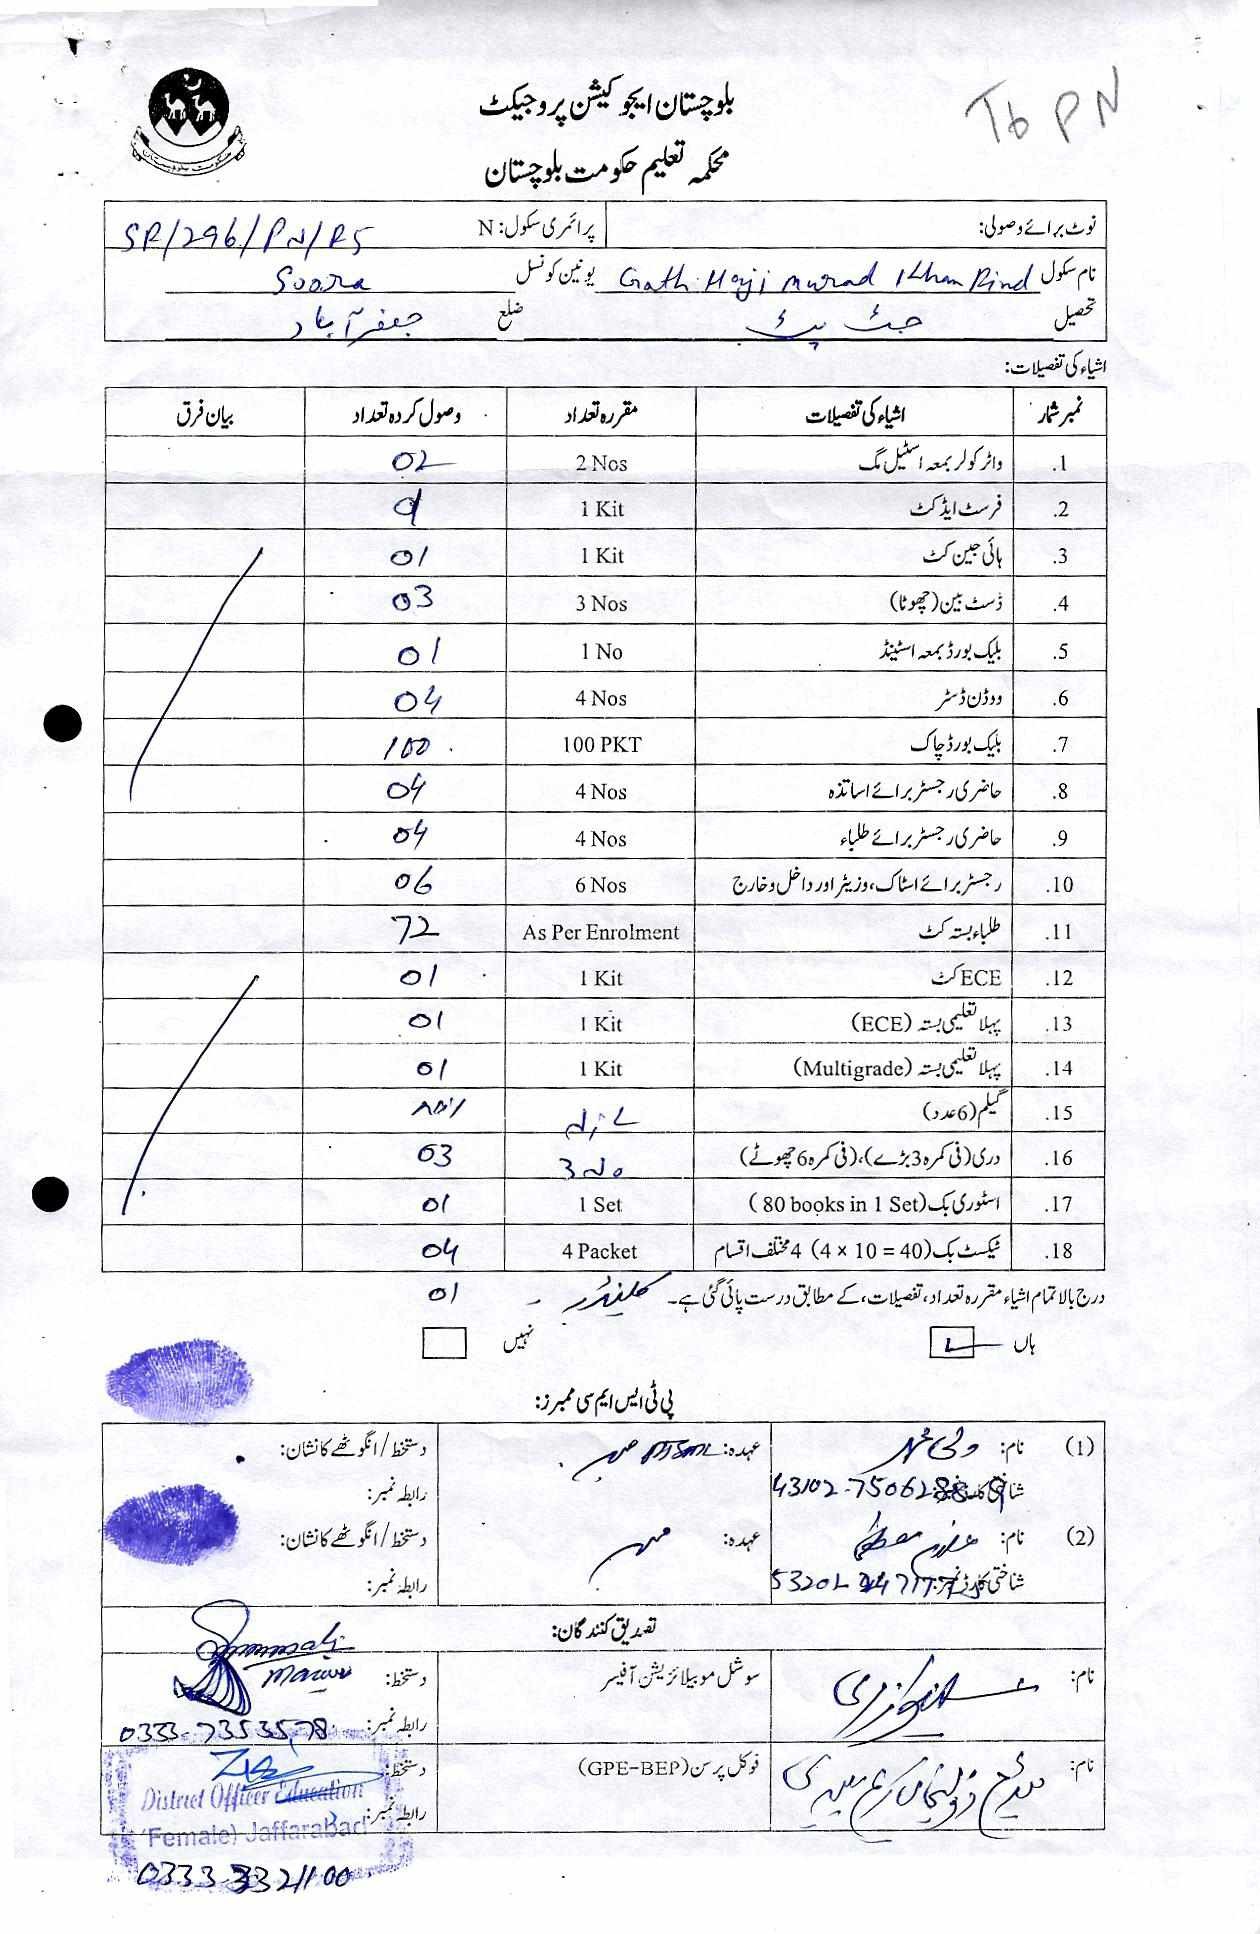 Tb PN
بلوچستان ایجوکیشن پروجیکٹ
محکمہ تعلیم حکومت بلوچستان
حکومت بلوچستان
نوٹ برائے وصولی: پرائمری سکول: N SR/296/PN/RS
نام سکول Goth Haji Murad Khan Rind یونین کونسل Soara
تحصیل جھٹ پٹ ضلع جعفرآباد
اشیاء کی تفصیلات:
نمبر شمار اشیاء کی تفصیلات مقررہ تعداد وصول کردہ تعداد بیان فرق
1. واٹر کولر بمعہ اسٹیل مگ 2 Nos 02
2. فرسٹ ایڈ کٹ 1 Kit 01
3. ہائی جین کٹ 1 Kit 01
4. ڈسٹ بین (چھوٹا) 3 Nos 03
5. بلیک بورڈ بمعہ اسٹینڈ 1 No 01
6. ووڈن ڈسٹر 4 Nos 04
7. بلیک بورڈ چاک 100 PKT 100
8. حاضری رجسٹر برائے اساتذہ 4 Nos 04
9. حاضری رجسٹر برائے طلباء 4 Nos 04
10. رجسٹر برائے اسٹاک، وزیٹر اور داخل و خارج 6 Nos 06
11. طلباء بستہ کٹ As Per Enrolment 72
12. ECE کٹ 1 Kit 01
13. پہلا تعلیمی بستہ (ECE) 1 Kit 01
14. پہلا تعلیمی بستہ (Multigrade) 1 Kit 01
15. گیلم (6 عدد)
16. دری (فی کمرہ 3 بڑے)، (فی کمرہ 6 چھوٹے) 3 No 03
17. اسٹوری بک (80 books in 1 Set) 1 Set 01
18. ٹیکسٹ بک (4 × 10 = 40) 4 مختلف اقسام 4 Packet 04
درج بالا تمام اشیاء مقررہ تعداد، تفصیلات، کے مطابق درست پائی گئی ہے۔ کلینڈر 01
ہاں نہیں
پی ٹی ایس ایم سی ممبرز:
(1) نام: ولی محمد عہدہ: ممبر PTSMC دستخط/انگوٹھے کا نشان:
شناختی کارڈ نمبر: 43102-7506288-9 رابطہ نمبر:
(2) نام: عہدہ: ممبر دستخط/انگوٹھے کا نشان:
شناختی کارڈ نمبر: رابطہ نمبر:
تصدیق کنندگان:
نام: سوشل موبیلائزیشن آفیسر دستخط:
رابطہ نمبر: 0333-7353578
نام: فوکل پرسن (GPE-BEP) دستخط:
رابطہ نمبر:
District Officer Education
(Female) Jaffarabad
0333-3321100